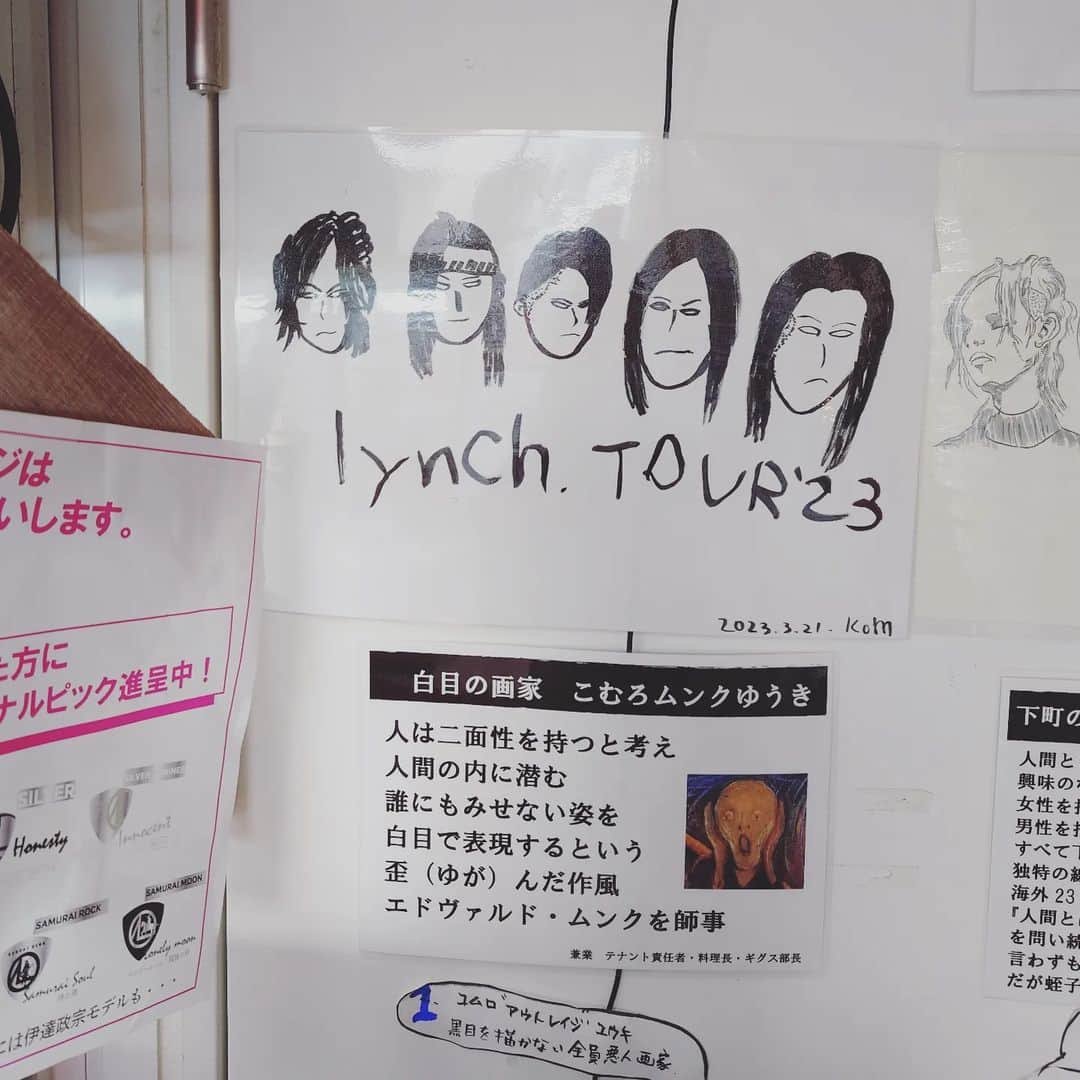 lynch. TOUR'23
2023.3.21. Kom
白目の画家 こむろムンクゆうき
人は二面性を持つと考え
人間の内に潜む
誰にもみせない姿を
白目で表現するという
歪（ゆが）んだ作風
エドヴァルド・ムンクを師事
兼業 テナント責任者・料理長・ギグス部長
1. コムロ"アウトレイジ"ユウキ
黒目を描かない全員悪人画家
ジは
いします。
た方に
ナルピック進呈中！
SILVER
Honesty
Innocent
SAMURAI ROCK
SAMURAI MOON
Samurai Soul
Lonely moon
には伊達政宗モデルも・・・
下町の
人間と
興味の
女性を
男性を
すべて
独特の
海外23
『人間と
を問い続
言わずも
だが蛭子